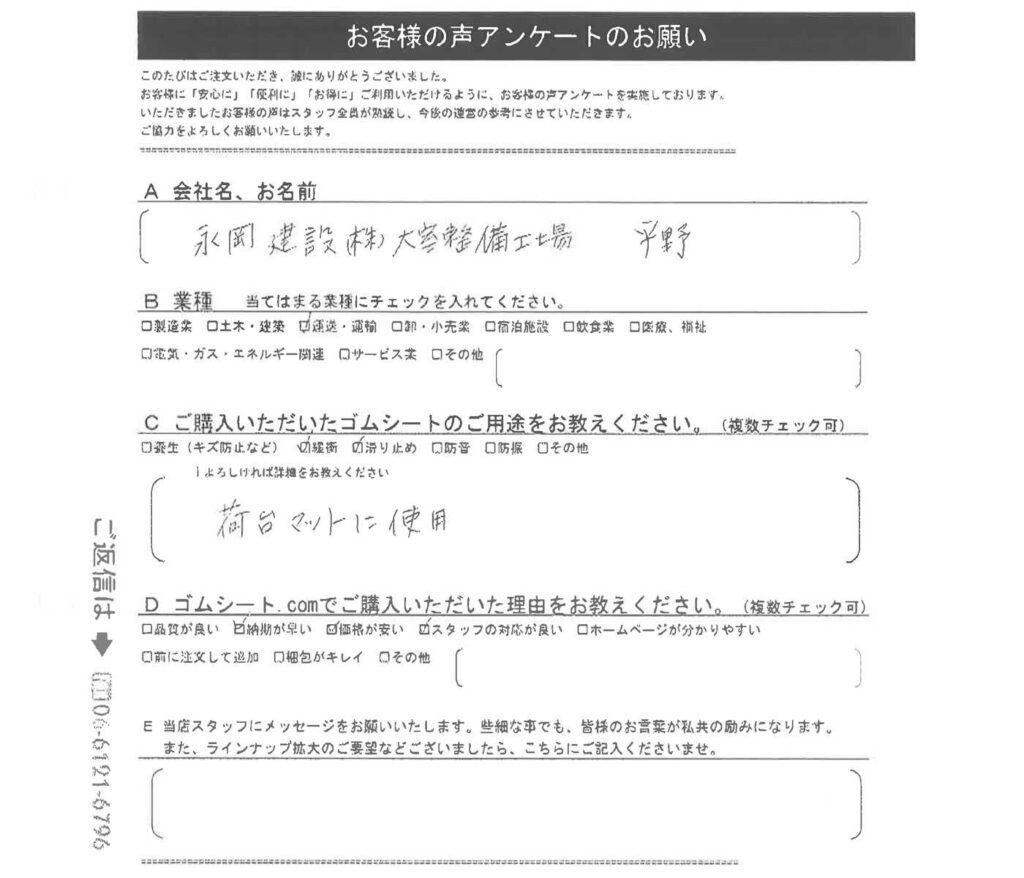 お客様の声アンケートのお願い
このたびはご注文いただき、誠にありがとうございました。
お客様に「安心に」「便利に」「お得に」ご利用いただけるように、お客様の声アンケートを実施しております。
いただきましたお客様の声はスタッフ全員が熟読し、今後の運営の参考にさせていただきます。
ご協力をよろしくお願いいたします。
A 会社名、お名前
永岡建設(株)大窪整備工場 平野
B 業種 当てはまる業種にチェックを入れてください。
□製造業 □土木・建築 ☑運送・運輸 □卸・小売業 □宿泊施設 □飲食業 □医療、福祉
□電気・ガス・エネルギー関連 □サービス業 □その他
C ご購入いただいたゴムシートのご用途をお教えください。(複数チェック可)
□養生(キズ防止など) ☑緩衝 ☑滑り止め □防音 □防振 □その他
↓よろしければ詳細をお教えください
荷台マットに使用
D ゴムシート.comでご購入いただいた理由をお教えください。(複数チェック可)
□品質が良い ☑納期が早い ☑価格が安い ☑スタッフの対応が良い □ホームページが分かりやすい
□前に注文して追加 □梱包がキレイ □その他
E 当店スタッフにメッセージをお願いいたします。些細な事でも、皆様のお言葉が私共の励みになります。
また、ラインナップ拡大のご要望などございましたら、こちらにご記入くださいませ。
ご返信は➡ 06-6121-6796